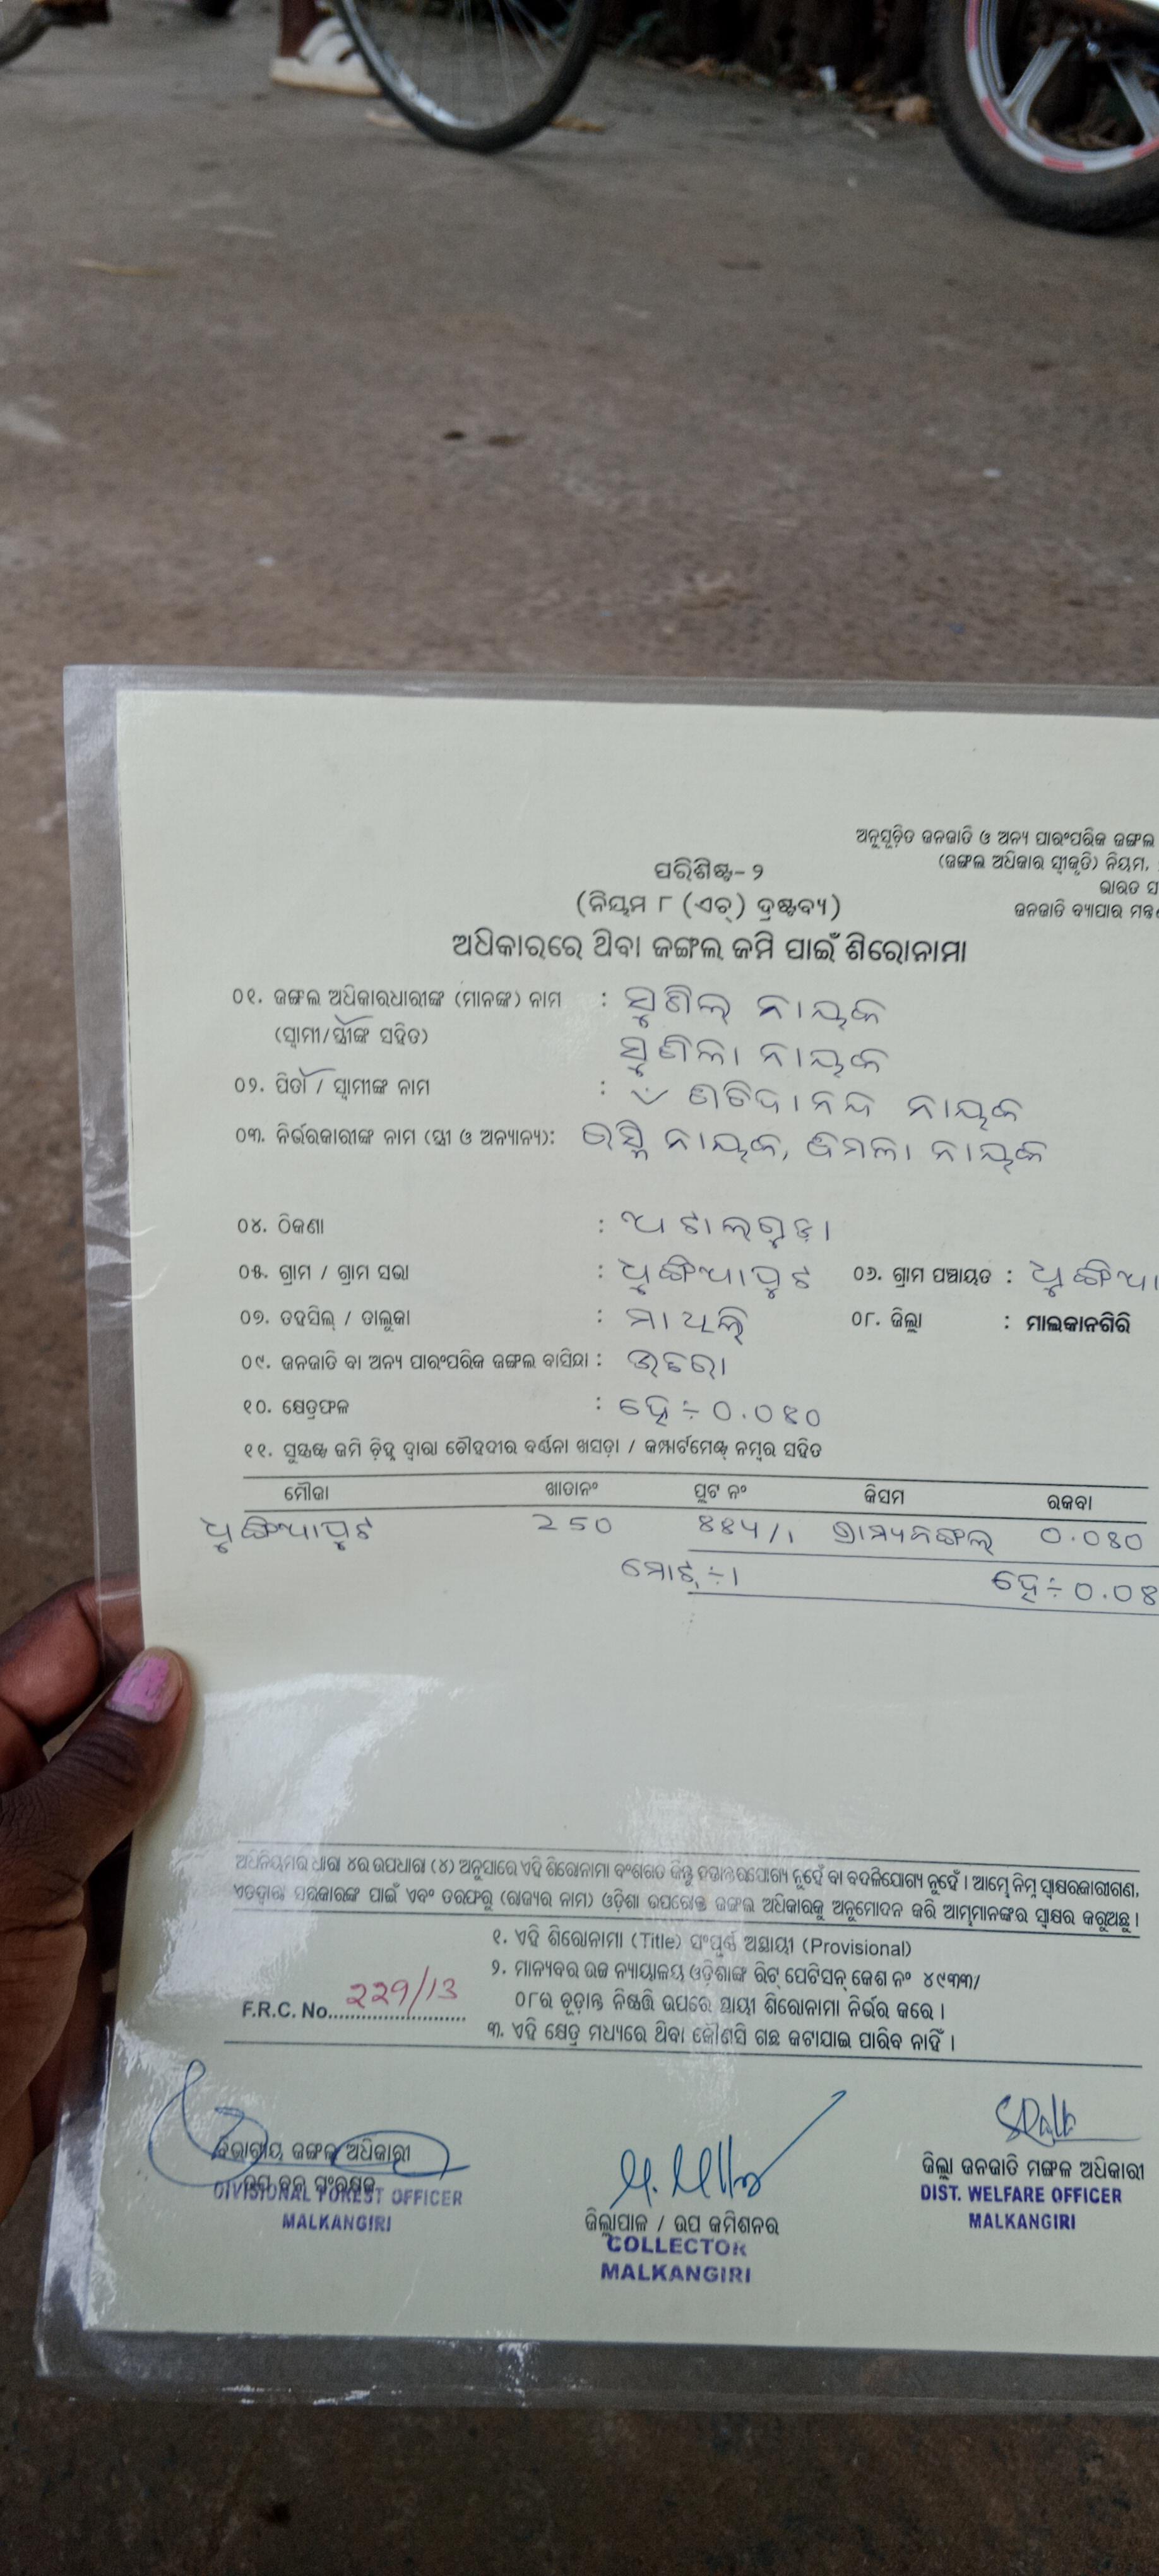 ଅନୁସୂଚିତ ଜନଜାତି ଓ ଅନ୍ୟ ପାରଂପରିକ ଜଙ୍ଗଲ
(ଜଙ୍ଗଲ ଅଧିକାର ସ୍ୱୀକୃତି) ନିୟମ,
ଭାରତ ସ
ଜନଜାତି ବ୍ୟାପାର
ପରିଶିଷ୍ଟ- ୨
(ନିୟମ ୮ (ଏଚ୍) ଦ୍ରଷ୍ଟବ୍ୟ)
ଅଧିକାରରେ ଥିବା ଜଙ୍ଗଲ ଜମି ପାଇଁ ଶିରୋନାମା
୦୧. ଜଙ୍ଗଲ ଅଧିକାରଧାରୀଙ୍କ (ମାନଙ୍କ) ନାମ : ସୁଶିଲ୍ ନାୟକ
(ସ୍ୱାମୀ/ସ୍ତ୍ରୀଙ୍କ ସହିତ) ସୁଶିଲା ନାୟକ
୦୨. ପିତା / ସ୍ୱାମୀଙ୍କ ନାମ : ନାୟକ
୦୩. ନିର୍ଭରକାରୀଙ୍କ ନାମ (ସ୍ତ୍ରୀ ଓ ଅନ୍ୟାନ୍ୟ): ନାୟକ, ନାୟକ
୦୪. ଠିକଣା : ଅଟାଲଗୁଡ଼ା
୦୫. ଗ୍ରାମ / ଗ୍ରାମ ସଭା : ଧୁଙ୍ଗିଆପୁଟ ୦୬. ଗ୍ରାମ ପଞ୍ଚାୟତ : ଧୁଙ୍ଗିଆ
୦୭. ତହସିଲ୍ / ତାଲୁକା : ମାଥିଲି ୦୮. ଜିଲ୍ଲା : ମାଲକାନଗିରି
୦୯. ଜନଜାତି ବା ଅନ୍ୟ ପାରଂପରିକ ଜଙ୍ଗଲ ବାସିନ୍ଦା :
୧୦. କ୍ଷେତ୍ରଫଳ : ହେ÷ ୦.୦୪୦
୧୧. ସୁସ୍ପଷ୍ଟ ଜମି ଚିହ୍ନ ଦ୍ୱାରା ଚୌହଦୀର ବର୍ଣ୍ଣନା ଖସଡ଼ା / କମ୍ପାର୍ଟମେଣ୍ଟ ନମ୍ବର ସହିତ
ମୌଜା ଖାତାନଂ ପ୍ଲଟ ନଂ କିସମ ରକବା
ଧୁଙ୍ଗିଆପୁଟ 250 ଗ୍ରାମ୍ୟଜଙ୍ଗଲ୍ ୦.୦୪୦
ମୋଟ୍ ÷ ୧ ହେ÷ ୦.୦୪
ଅଧିନିୟମର ଧାରା ୪ର ଉପଧାରା (୪) ଅନୁସାରେ ଏହି ଶିରୋନାମା ବଂଶଗତ କିନ୍ତୁ ହସ୍ତାନ୍ତରଯୋଗ୍ୟ ନୁହେଁ ବା ବଦଳିଯୋଗ୍ୟ ନୁହେଁ । ଆମ୍ଭେ ନିମ୍ନ ସ୍ୱାକ୍ଷରକାରୀଗଣ,
ଏତଦ୍ଦ୍ୱାରା ସରକାରଙ୍କ ପାଇଁ ଏବଂ ତରଫରୁ (ରାଜ୍ୟର ନାମ) ଓଡ଼ିଶା ଉପରୋକ୍ତ ଜଙ୍ଗଲ ଅଧିକାରକୁ ଅନୁମୋଦନ କରି ଆମ୍ଭମାନଙ୍କର ସ୍ୱାକ୍ଷର କରୁଅଛୁ ।
୧. ଏହି ଶିରୋନାମା (Title) ସଂପୂର୍ଣ୍ଣ ଅସ୍ଥାୟୀ (Provisional)
୨. ମାନ୍ୟବର ଉଚ୍ଚ ନ୍ୟାୟାଳୟ ଓଡ଼ିଶାଙ୍କ ରିଟ୍ ପେଟିସନ୍ କେଶ ନଂ ୪୯୩୩/
୦୮ର ଚୂଡ଼ାନ୍ତ ନିଷ୍ପତ୍ତି ଉପରେ ସ୍ଥାୟୀ ଶିରୋନାମା ନିର୍ଭର କରେ ।
F.R.C. No. 229/13
୩. ଏହି କ୍ଷେତ୍ର ମଧ୍ୟରେ ଥିବା କୌଣସି ଗଛ କଟାଯାଇ ପାରିବ ନାହିଁ ।
ବିଭାଗୀୟ ଜଙ୍ଗଲ ଅଧିକାରୀ
ଉପ ବନ ସଂରକ୍ଷକ
DIVISIONAL FOREST OFFICER
MALKANGIRI
ଜିଲ୍ଲାପାଳ / ଉପ କମିଶନର
COLLECTOR
MALKANGIRI
ଜିଲ୍ଲା ଜନଜାତି ମଙ୍ଗଳ ଅଧିକାରୀ
DIST. WELFARE OFFICER
MALKANGIRI